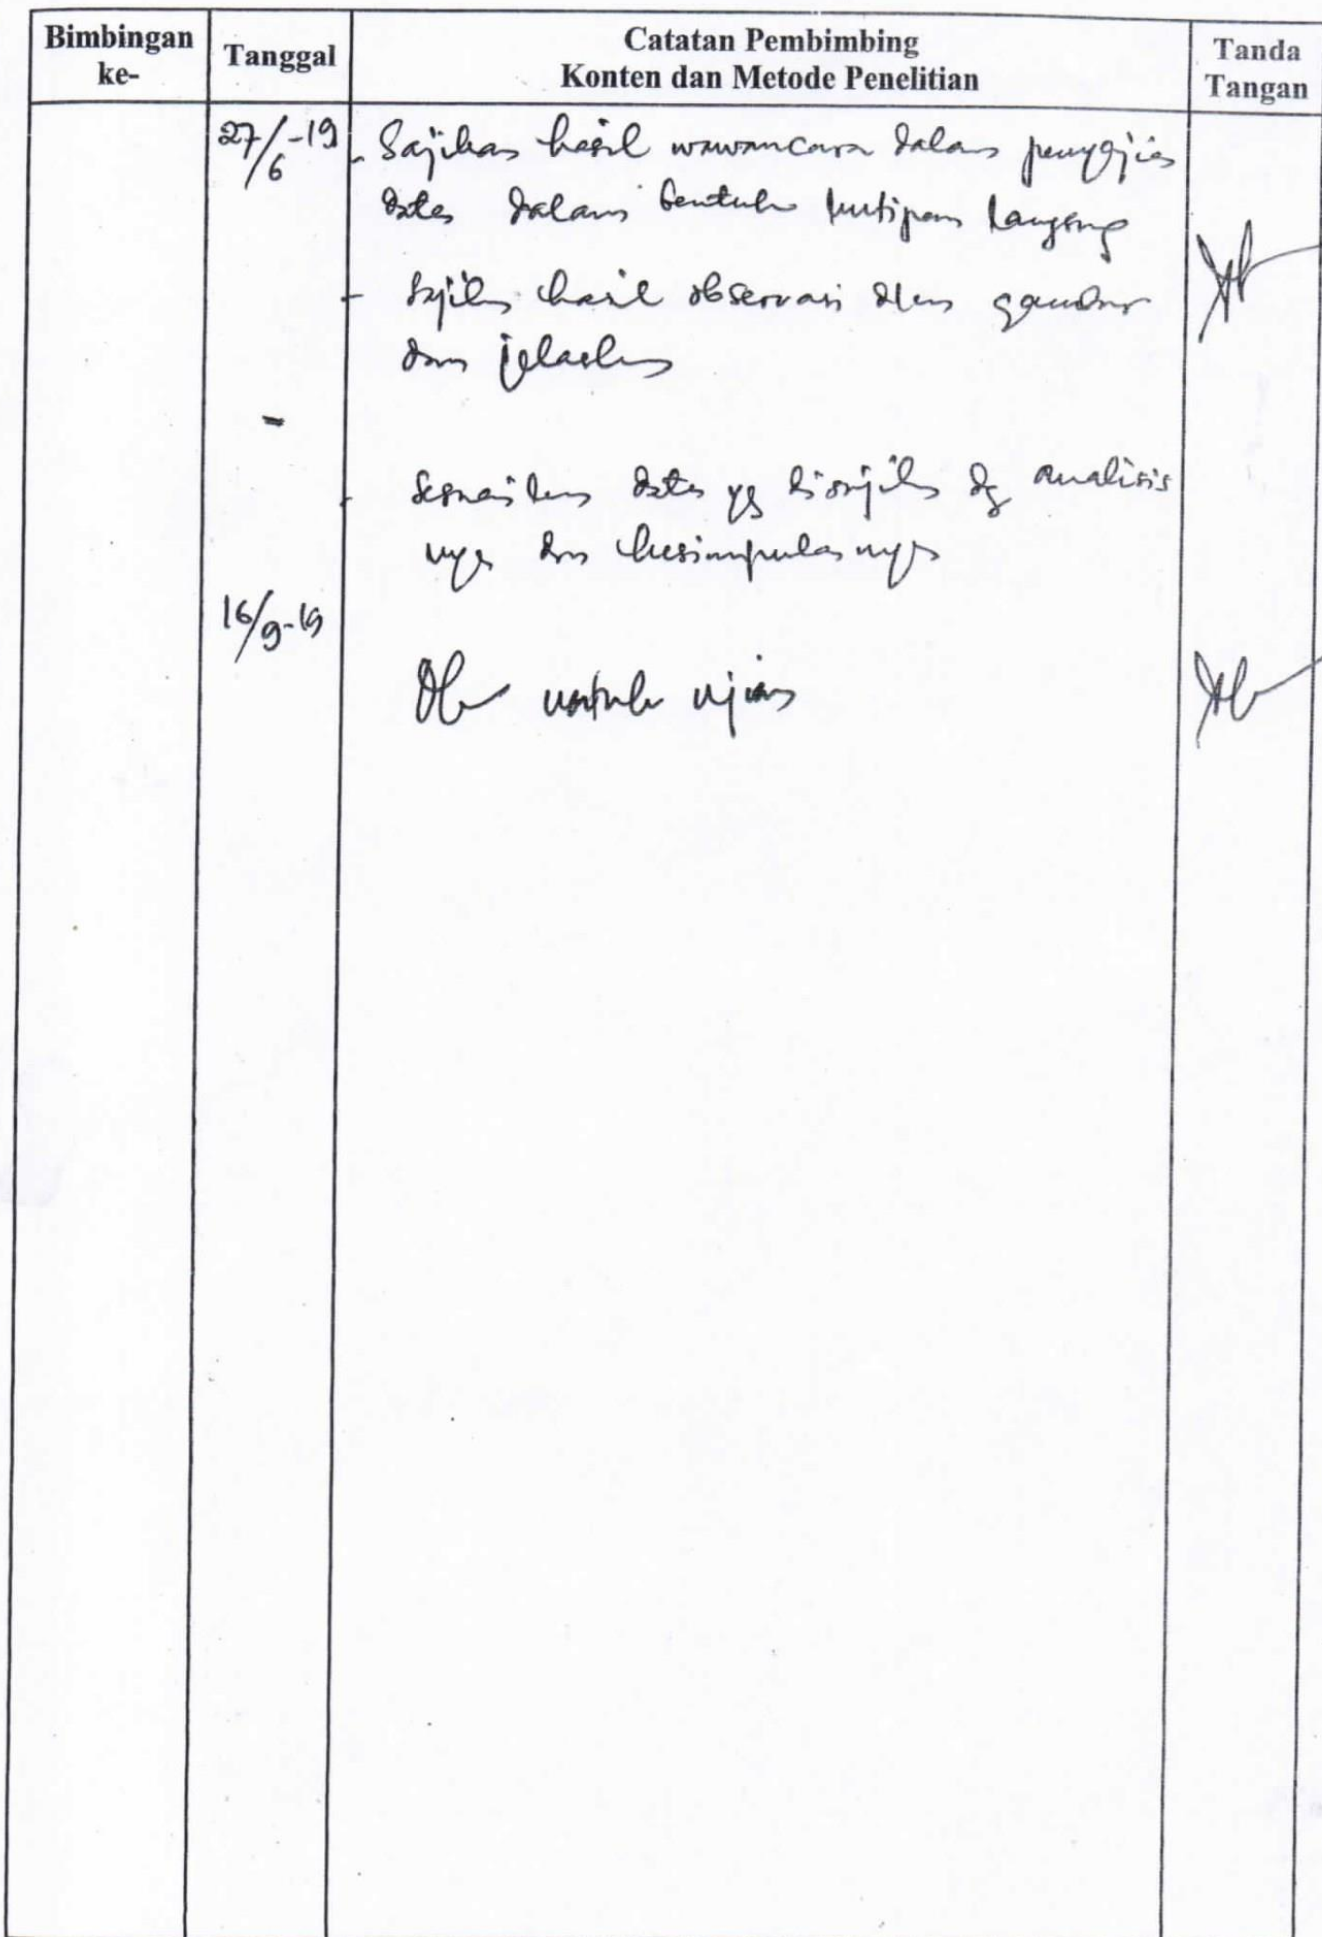 Bimbingan ke-
Tanggal
Catatan Pembimbing
Konten dan Metode Penelitian
Tanda Tangan
27/6-19
- Sajikan hasil wawancara dalam penyajian
data dalam bentuk kutipan langsung
- Sajikan hasil observasi dlm gambar
dan jelaskan
-
- Sesuaikan data yg disajikan dg analisis
nya dan kesimpulannya
16/9-19
Ok untuk ujian